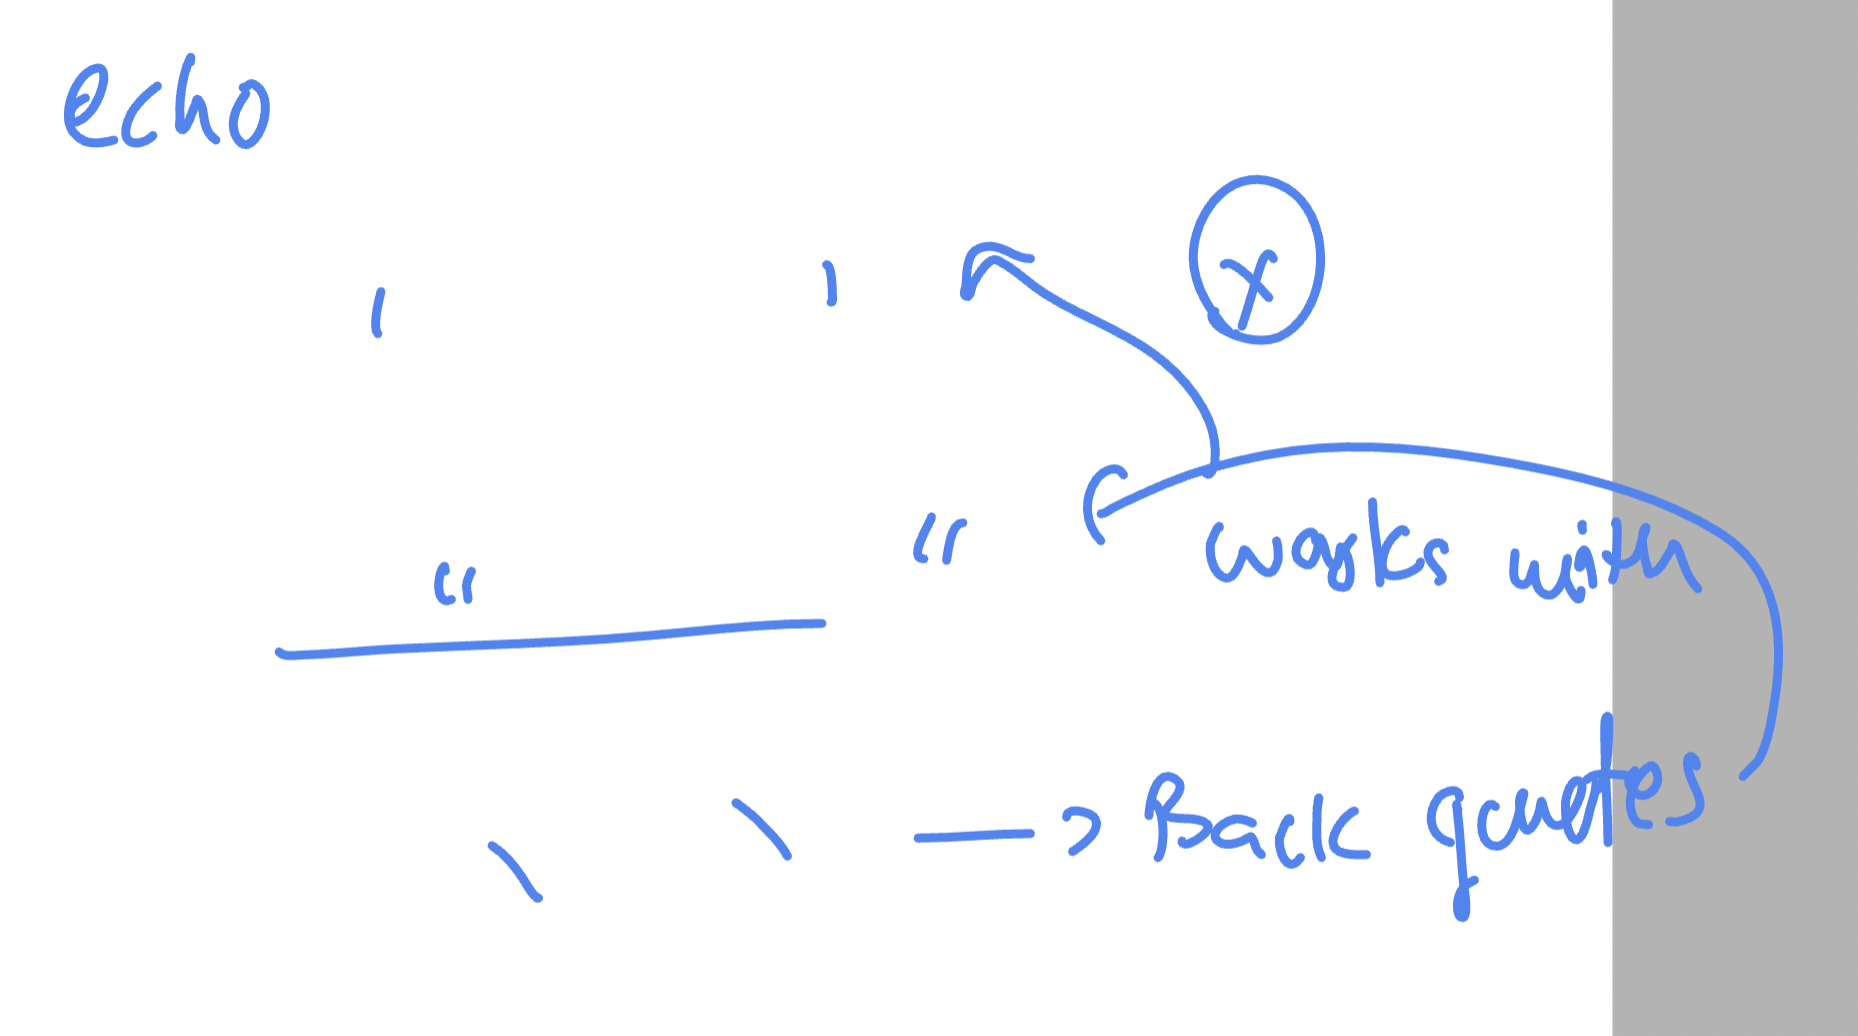 echo
' ' x
" " works with
` ` → Back quotes